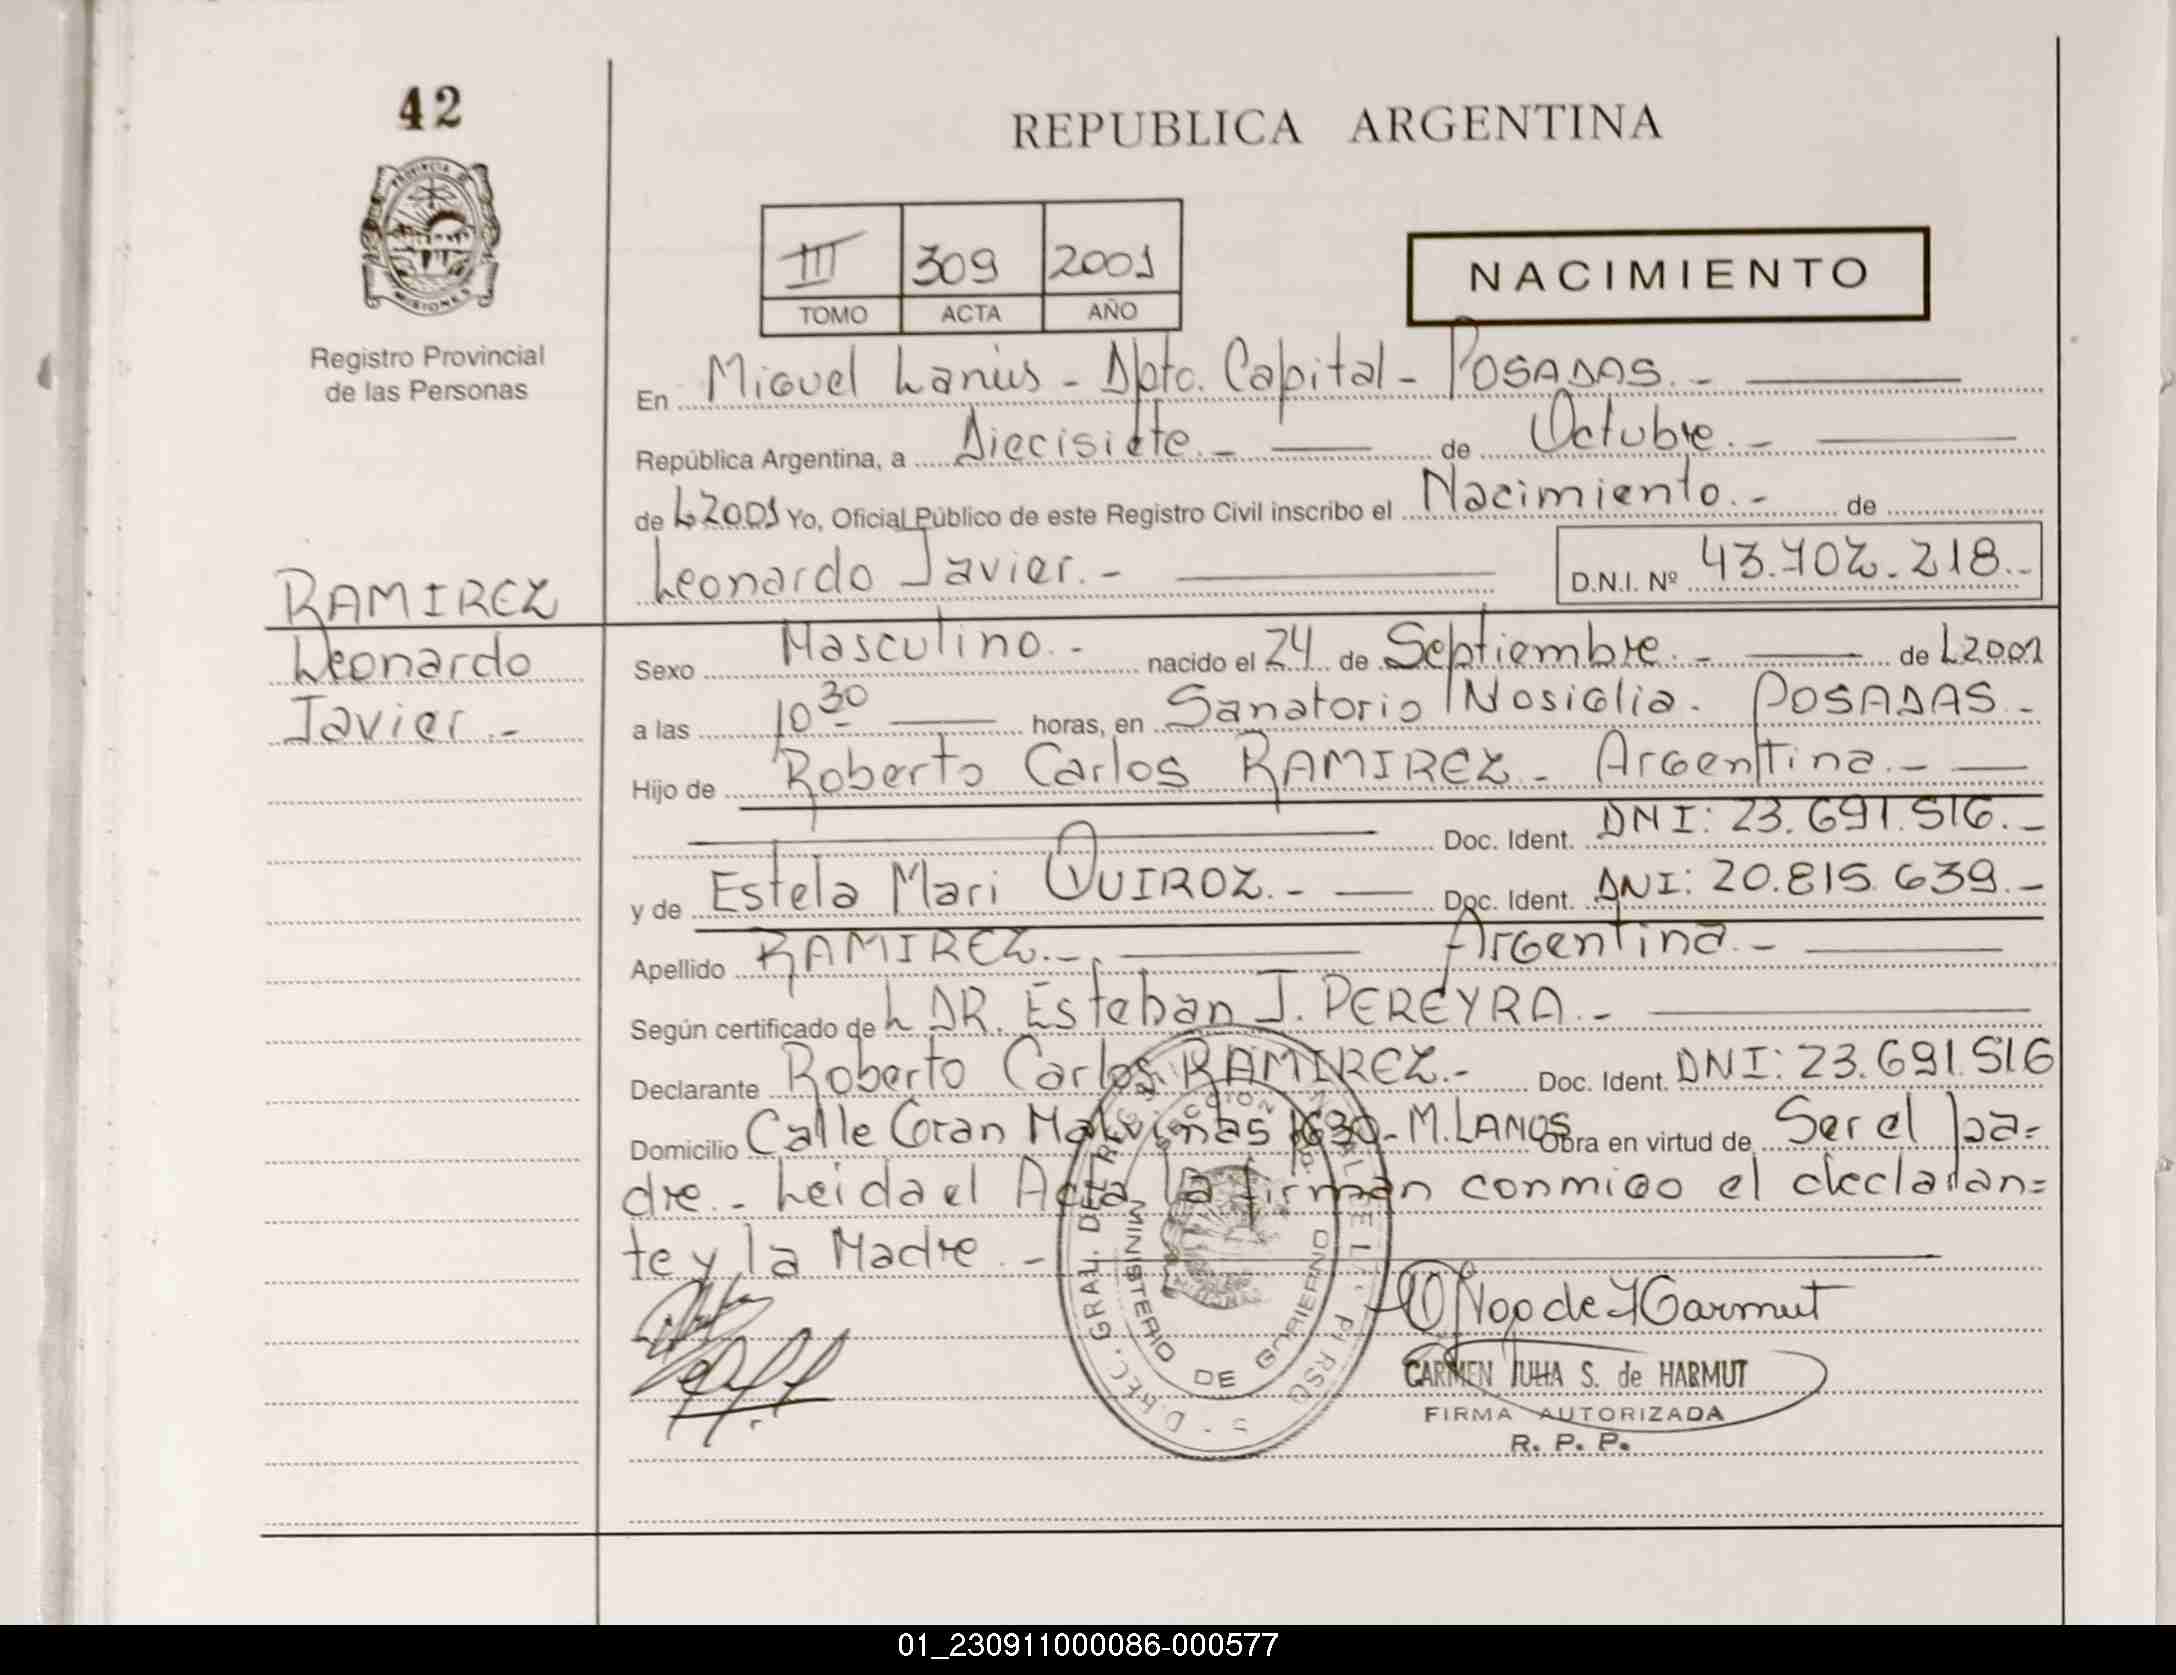 42
REPUBLICA ARGENTINA
PROVINCIA DE
MISIONES
Registro Provincial
de las Personas
III 309 2001
TOMO ACTA AÑO
NACIMIENTO
En Miguel Lanús - Dpto. Capital - POSADAS.-
República Argentina, a Diecisiete.- de Octubre.-
de L2001 Yo, Oficial Público de este Registro Civil inscribo el Nacimiento.- de
Leonardo Javier.- D.N.I. Nº 43.702.218.-
RAMIREZ
Leonardo
Javier.-
Sexo Masculino.- nacido el 24 de Septiembre.- de L2001
a las 10 30 horas, en Sanatorio Nosiglia. POSADAS-
Hijo de Roberto Carlos RAMIREZ- Argentina.-
Doc. Ident. DNI: 23.691.516.-
y de Estela Mari QUIROZ.- Doc. Ident. DNI: 20.815.639.-
Apellido RAMIREZ.- Argentina.-
Según certificado de L DR. Esteban J. PEREYRA.-
Declarante Roberto Carlos RAMIREZ.- Doc. Ident. DNI: 23.691.516
Domicilio Calle Gran Malvinas 1630-M.LANUS Obra en virtud de Ser el pa=
dre.- Leida el Acta la firman conmigo el declaran=
te y la Madre.-
MINISTERIO DE GOBIERNO
de Harmut
CARMEN JULIA S. de HARMUT
FIRMA AUTORIZADA
R. P. P.
01_230911000086-000577